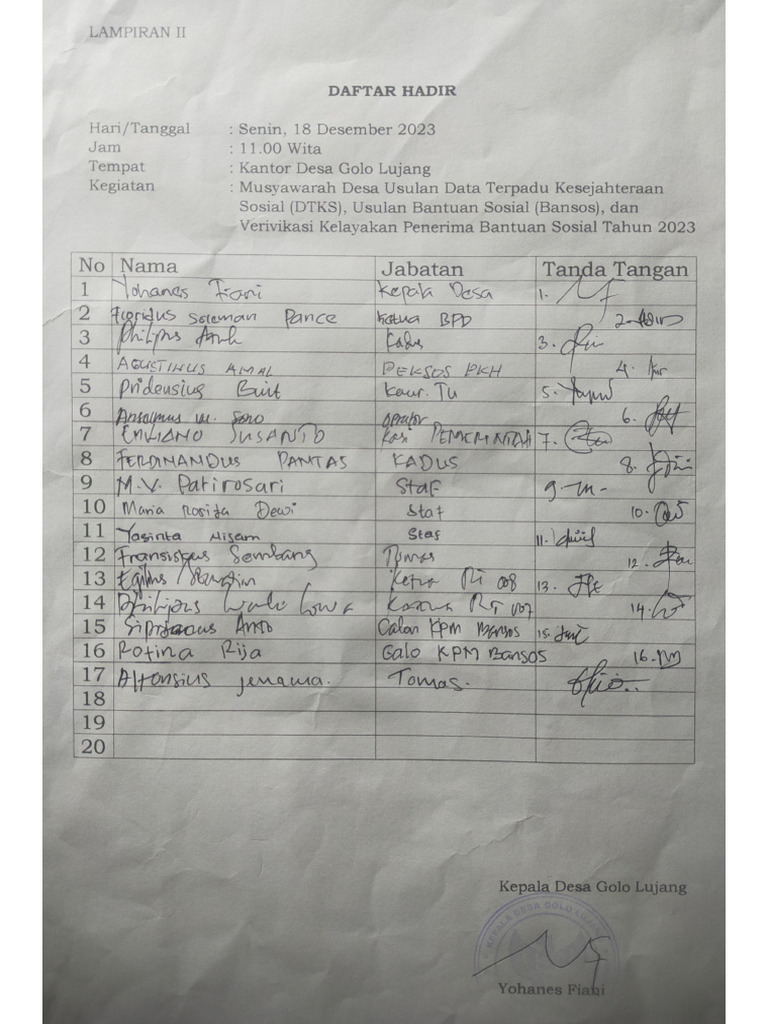 LAMPIRAN II
DAFTAR HADIR
Hari/Tanggal : Senin, 18 Desember 2023
Jam : 11.00 Wita
Tempat : Kantor Desa Golo Lujang
Kegiatan : Musyawarah Desa Usulan Data Terpadu Kesejahteraan
Sosial (DTKS), Usulan Bantuan Sosial (Bansos), dan
Verivikasi Kelayakan Penerima Bantuan Sosial Tahun 2023
No Nama Jabatan Tanda Tangan
1 Yohanes Fiani Kepala Desa 1.
2 Soleman Pance Ketua BPD 2.
3 Philipus Kadus 3.
4 AGUSTINUS AMAL PEKSOS PKH 4.
5 Kaur. Tu 5.
6 6.
7 EMILIANO SUSANTO Kasi PEMERINTAH 7.
8 FERDINANDUS PANTAS KADUS 8.
9 M.V. Patirosari Staf 9.
10 Maria Rosita Dewi Staf 10.
11 Yasinta Staf 11.
12 Fransiskus Sembang Tomas 12.
13 Ketua RT 008 13.
14 Philipus RT 007 14.
15 Calon KPM Bansos 15.
16 Rofina Rija Calo KPM Bansos 16.
17 Alfonsius Jemama. Tomas.
18
19
20
Kepala Desa Golo Lujang
KEPALA DESA GOLO LUJANG
Yohanes Fiani